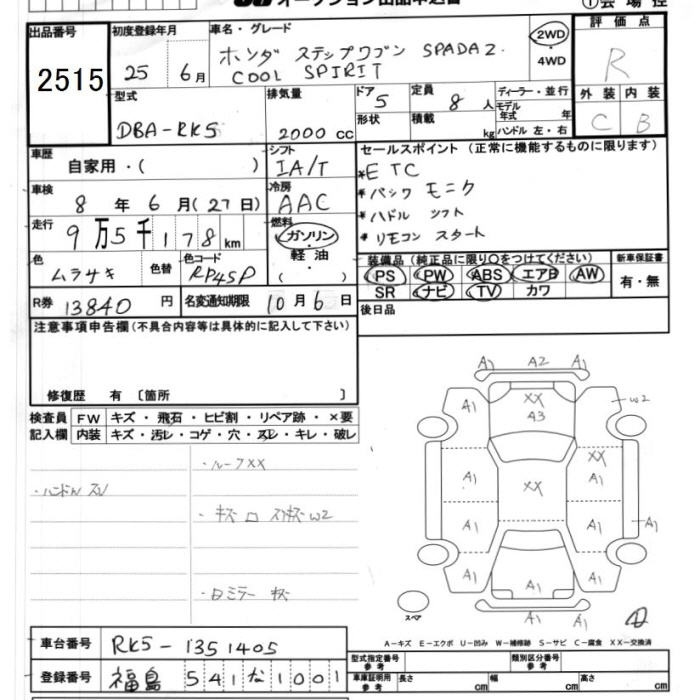 オークション出品申込書
①会場控
出品番号
2515
初度登録年月
25 6月
車名・グレード
ホンダ ステップワゴン SPADA Z
COOL SPIRIT
2WD
・
4WD
評価点
R
外装 内装
C B
型式
DBA-RK5
排気量
2000 cc
ドア
5
形状
定員
8 人
積載
kg
ディーラー・並行
モデル
年式 年
ハンドル 左・右
車歴
自家用・( )
シフト
IA/T
セールスポイント (正常に機能するものに限ります)
*ETC
*バックモニタ
*ハドル シフト
*リモコン スタート
車検
8 年 6 月(27日)
冷房
AAC
走行
9万5千178km
燃料
ガソリン
・
軽油
・
( )
色
ムラサキ
色替
色コード
RP45P
装備品 (純正品に限り○をつけてください)
PS PW ABS エアB AW
SR ナビ TV カワ
新車保証書
有・無
R券 13840 円
名変通知期限 10月6日
後日品
注意事項申告欄(不具合内容等は具体的に記入して下さい)
修復歴 有 〔箇所 〕
検査員
記入欄
FW キズ・飛石・ヒビ割・リペア跡・×要
内装 キズ・汚レ・コゲ・穴・スレ・キレ・破レ
・ルーフXX
・ハンドル スレ
・ロミラー キズ
A1 A2 A1
A1 XX A1 W2
A3
A1 XX XX
A1
A1 A1 A1
A1 A1 A1
A1 A1
スペア
A-キズ E-エクボ U-凹み W-補修跡 S-サビ C-腐食 XX-交換済
車台番号 RK5-1351405
登録番号 福島 541 な 1001
型式指定番号
参考
類別区分番号
参考
車庫証明用
参考
長さ cm 幅 cm 高さ cm